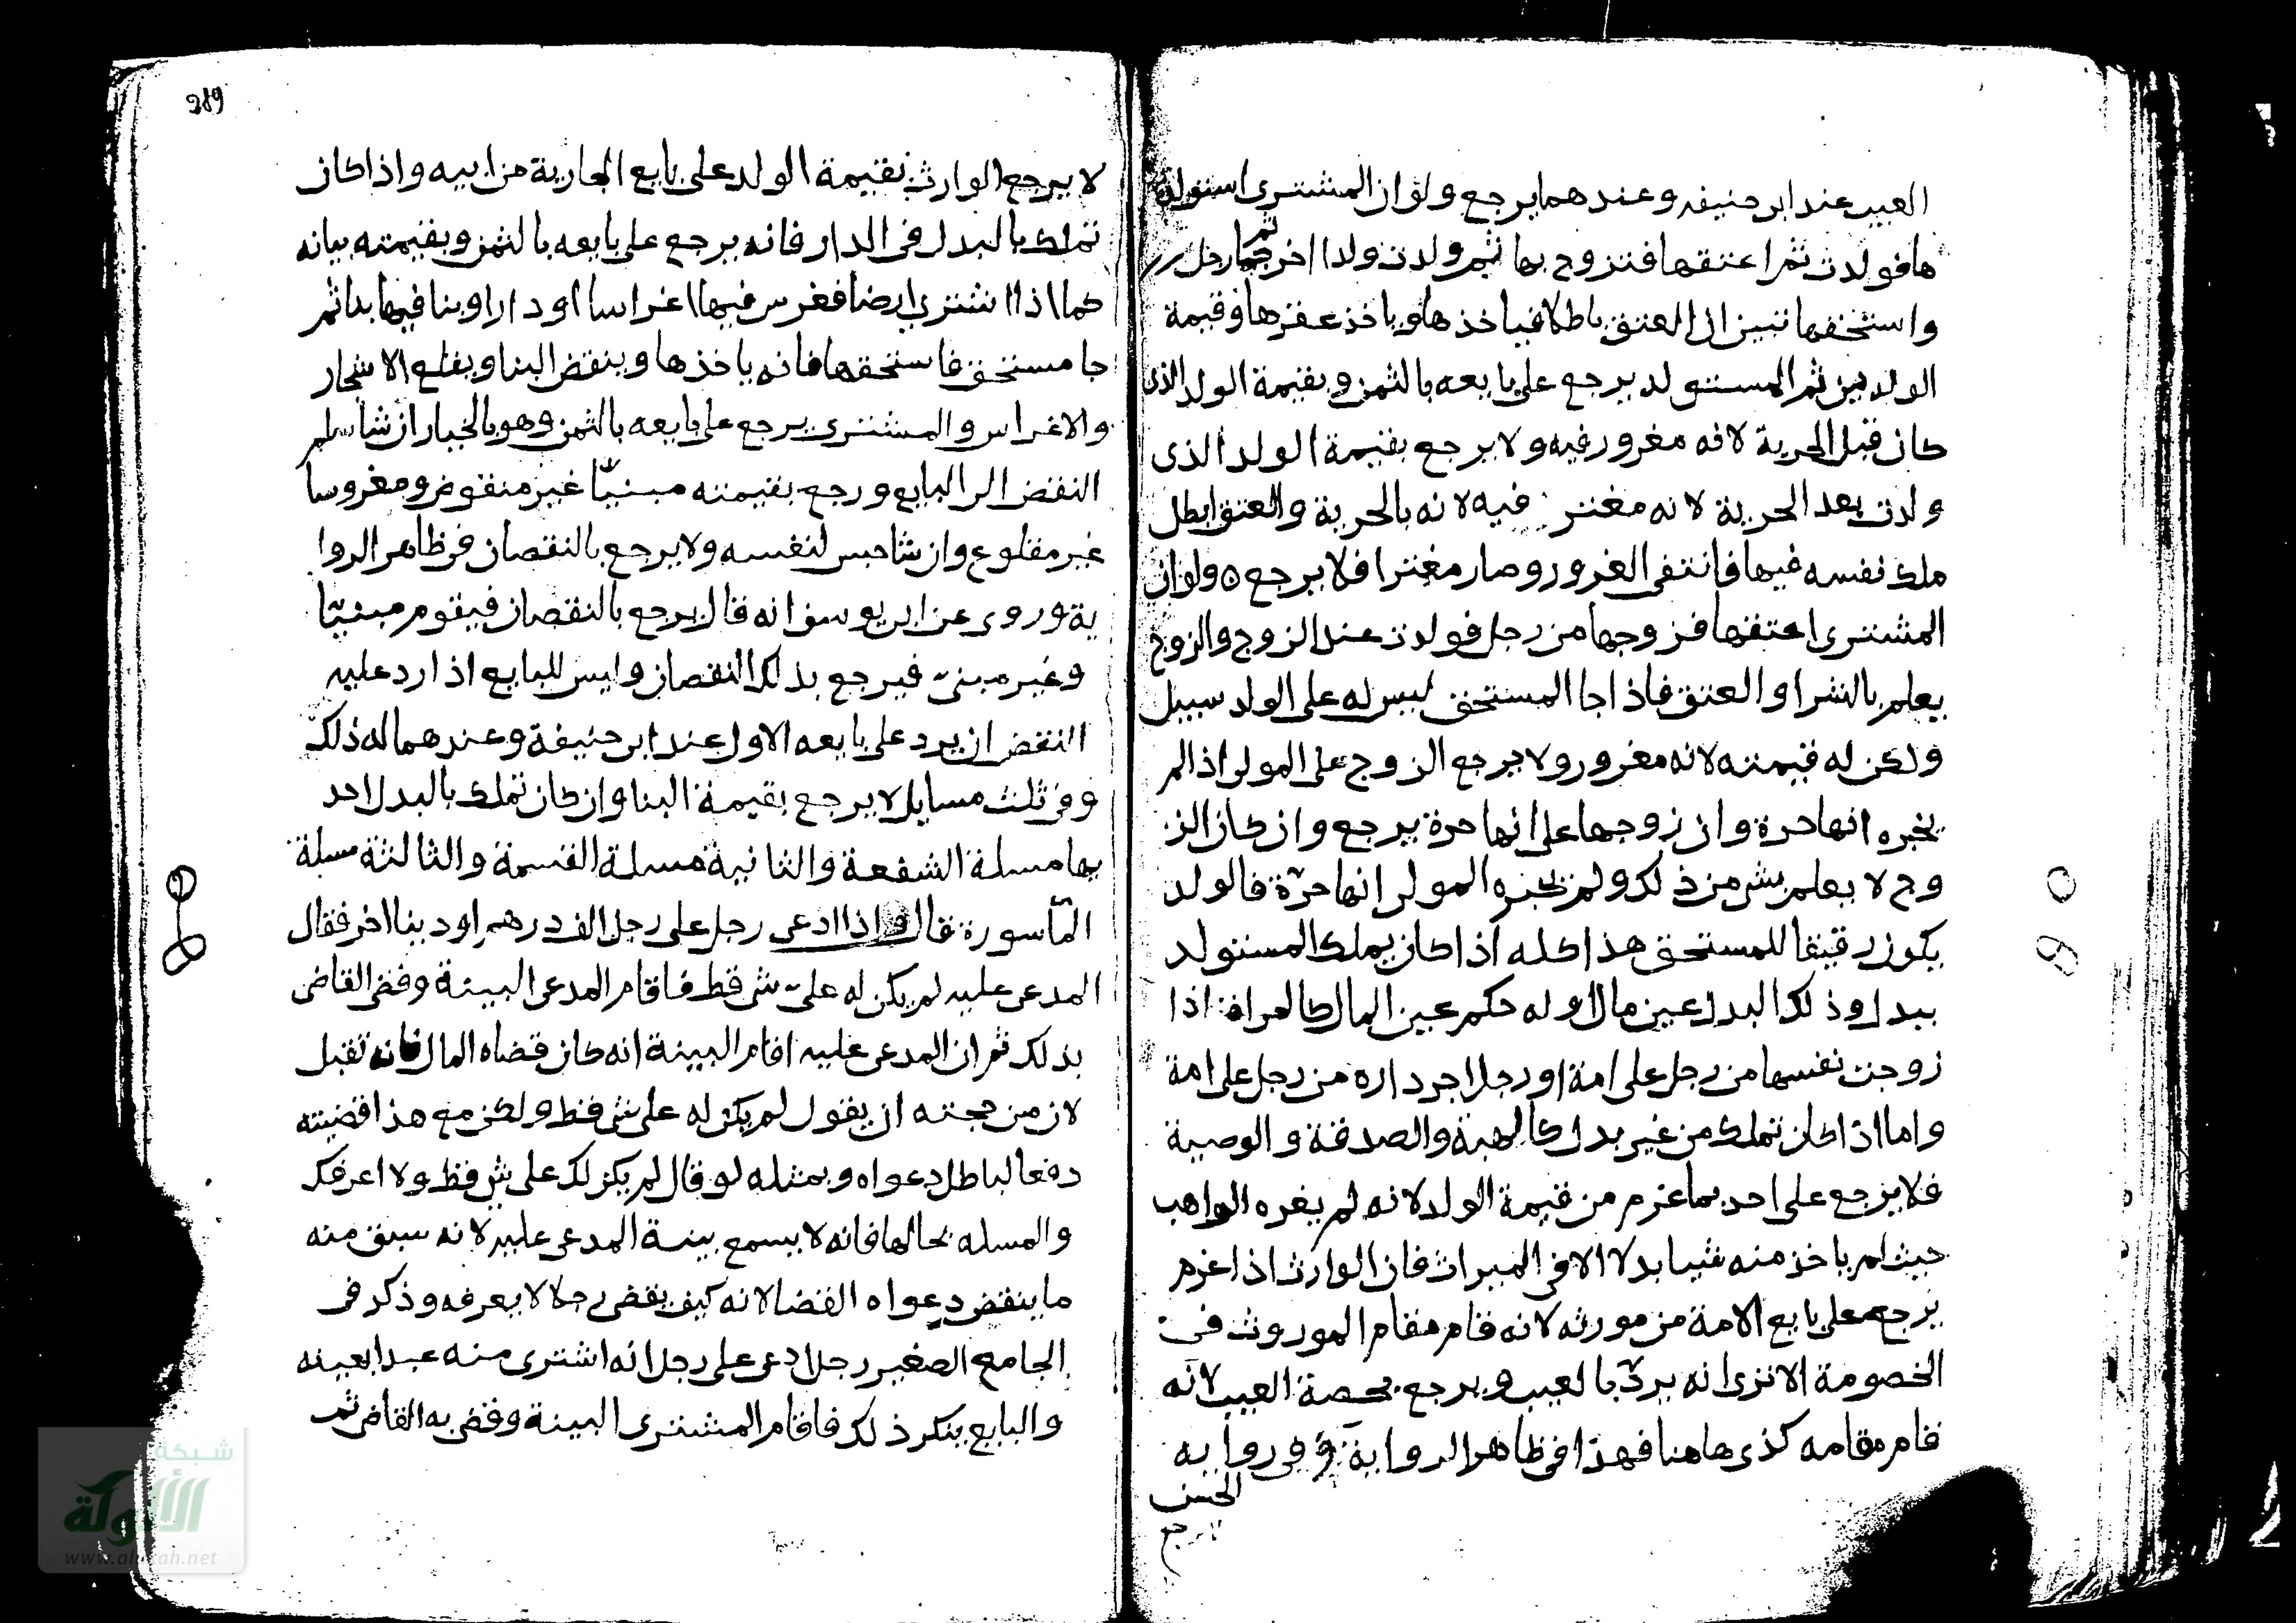 العيب عند ابى حنيفه وعندهما يرجع ولو ان المشترى استولد
ها فولدت ثم اعتقها فتزوج بها ثم ولدت ولدا اخر ثم جا رجل
واستحقها تبين ان العتق باطلا فياخذها وياخذ عقرها وقيمة
الولدين ثم المستولد يرجع على بايعه بالثمن وبقيمة الولد الذى
كان قبل الحرية لانه مغرور فيه ولا يرجع بقيمة الولد الذى
ولدت بعد الحرية لانه مغتر فيه لانه بالحرية والعتق ابطل
ملك نفسه فيها فانتفى الغرور وصار مغترا فلا يرجع ٥ ولو ان
المشترى اعتقها فزوجها من رجل فولدت عند الزوج والزوج
يعلم بالشرا والعتق فاذا جا المستحق ليس له على الولد سبيل
ولكن له قيمته لانه مغرور ولا يرجع الزوج على المولى اذا لم
يخبره انها حرة وان زوجها على انها حرة يرجع وان كان الز
وج لا يعلم بشى من ذلك ولم يخبره المولى انها حرّة فالولد
يكون رقيقا للمستحق هذا كله اذا كان يملك المستولد
ببدل وذلك البدل عين مال او له حكم عين المال كالمراة اذا
زوجت نفسها من رجل على امة او رجل اجر داره من رجل على امة
واما اذا كان تملك من غير بدل كالهبة والصدقة والوصية
فلا يرجع على احد بما غرم من قيمة الولد لانه لم يغره الواهب
حيث لم ياخذ منه شيا بدلا الا فى الميراث فان الوارث اذا غرم
يرجع على بايع الامة من مورثه لانه قام مقام الموروث فى
الخصومة الا ترى انه يردّ بالعيب ويرجع بحصة العيب لانه
قام مقامه كذى هاهنا فهذا فى ظاهر الرواية وفى روايه
الحسن
لا يرجع
289
لا يرجع الوارث بقيمة الولد على بايع الجارية من ابيه واذا كان
تملك بالبدل فى الدار فانه يرجع على بايعه بالثمن وبقيمته بيانه
كما اذا اشترى ارضا فغرس فيها اغراسا او دارا وبنا فيها بنا ثم
جا مستحق فاستحقها فانه ياخذها وينقض البنا ويقلع الاشجار
والاغراس والمشترى يرجع على بايعه بالثمن وهو بالخيار ان شا سلم
النقض الى البايع ورجع بقيمته مبنيّا غير منقوض ومغروسا
غير مقلوع وان شا حبس لنفسه ولا يرجع بالنقصان فى ظاهر الروا
ية وروى عن ابى يوسف انه قال يرجع بالنقصان فيقوم مبنيّا
وغير مبنىّ فيرجع بذلك النقصان وليس للبايع اذا رد عليه
النقض ان يرد على بايعه الاول عند ابى حنيفة وعندهما له ذلك
وفى ثلث مسايل لا يرجع بقيمة البنا وان كان تملك بالبدل احد
يها مسلة الشفعة والثانية مسلة القسمة والثالثة مسلة
المأسورة قال واذا ادعى رجل على رجل الف درهم او دينا اخر فقال
المدعى عليه لم يكن له علىّ شى قط فاقام المدعى البينة وقضى القاضى
بذلك ثم ان المدعى عليه اقام البينة انه كان قضاه المال فانه تقبل
لان من حجته ان يقول لم يكن له على شى قط ولكن مع هذا قضيته
دفعا لباطل دعواه وبمثله لو قال لم يكن لك على شى قط ولا اعرفك
والمسله بحالها فانه لا يسمع بينة المدعى عليه لانه سبق منه
ما ينقض دعواه القضا لانه كيف يقضى رجلا لا يعرفه وذكر فى
الجامع الصغير رجل ادعى على رجل انه اشترى منه عبدا بعينه
والبايع ينكر ذلك فاقام المشترى البينة وقضى به القاضى ثم
شبكة
الألوكة
www.alukah.net